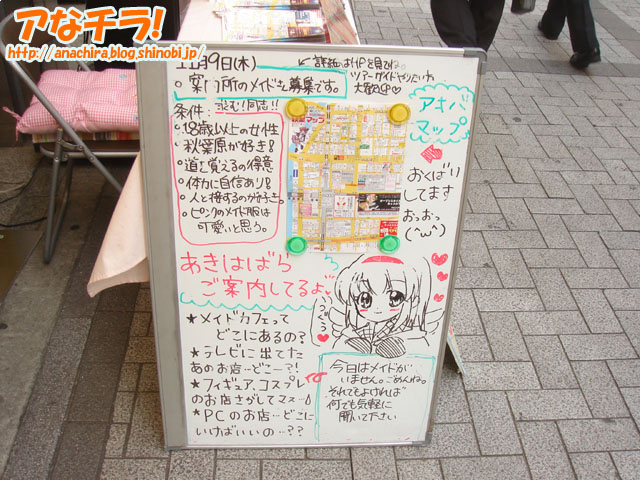 アなチラ!
http://anachira.blog.shinobi.jp/
11月9日(木)
←詳細はHPを見てね。
ツアーガイドやりたいわ
大歓迎
。案内所のメイドも募集です。
条件: 求む!同志!!
。18歳以上の女性
。秋葉原が好き
。道を覚えるの得意
。体力に自信あり
。人と接するのが好き。
。ピンクのメイド服は
可愛いと思う。
アキバ
マップ
おくばり
してます
おぉっ
(^ω^)
あきはばら
ご案内してるよ
★メイドカフェって
どこにあるの?
★テレビに出てた
あのお店…どこー?!
★フィギュア、コスプレ
のお店さがしてマス…
★PCのお店…どこに
いけばいいの…??
今日はメイドが
いません。ごめんね。
それでもよければ
何でも気軽に
聞いて下さい